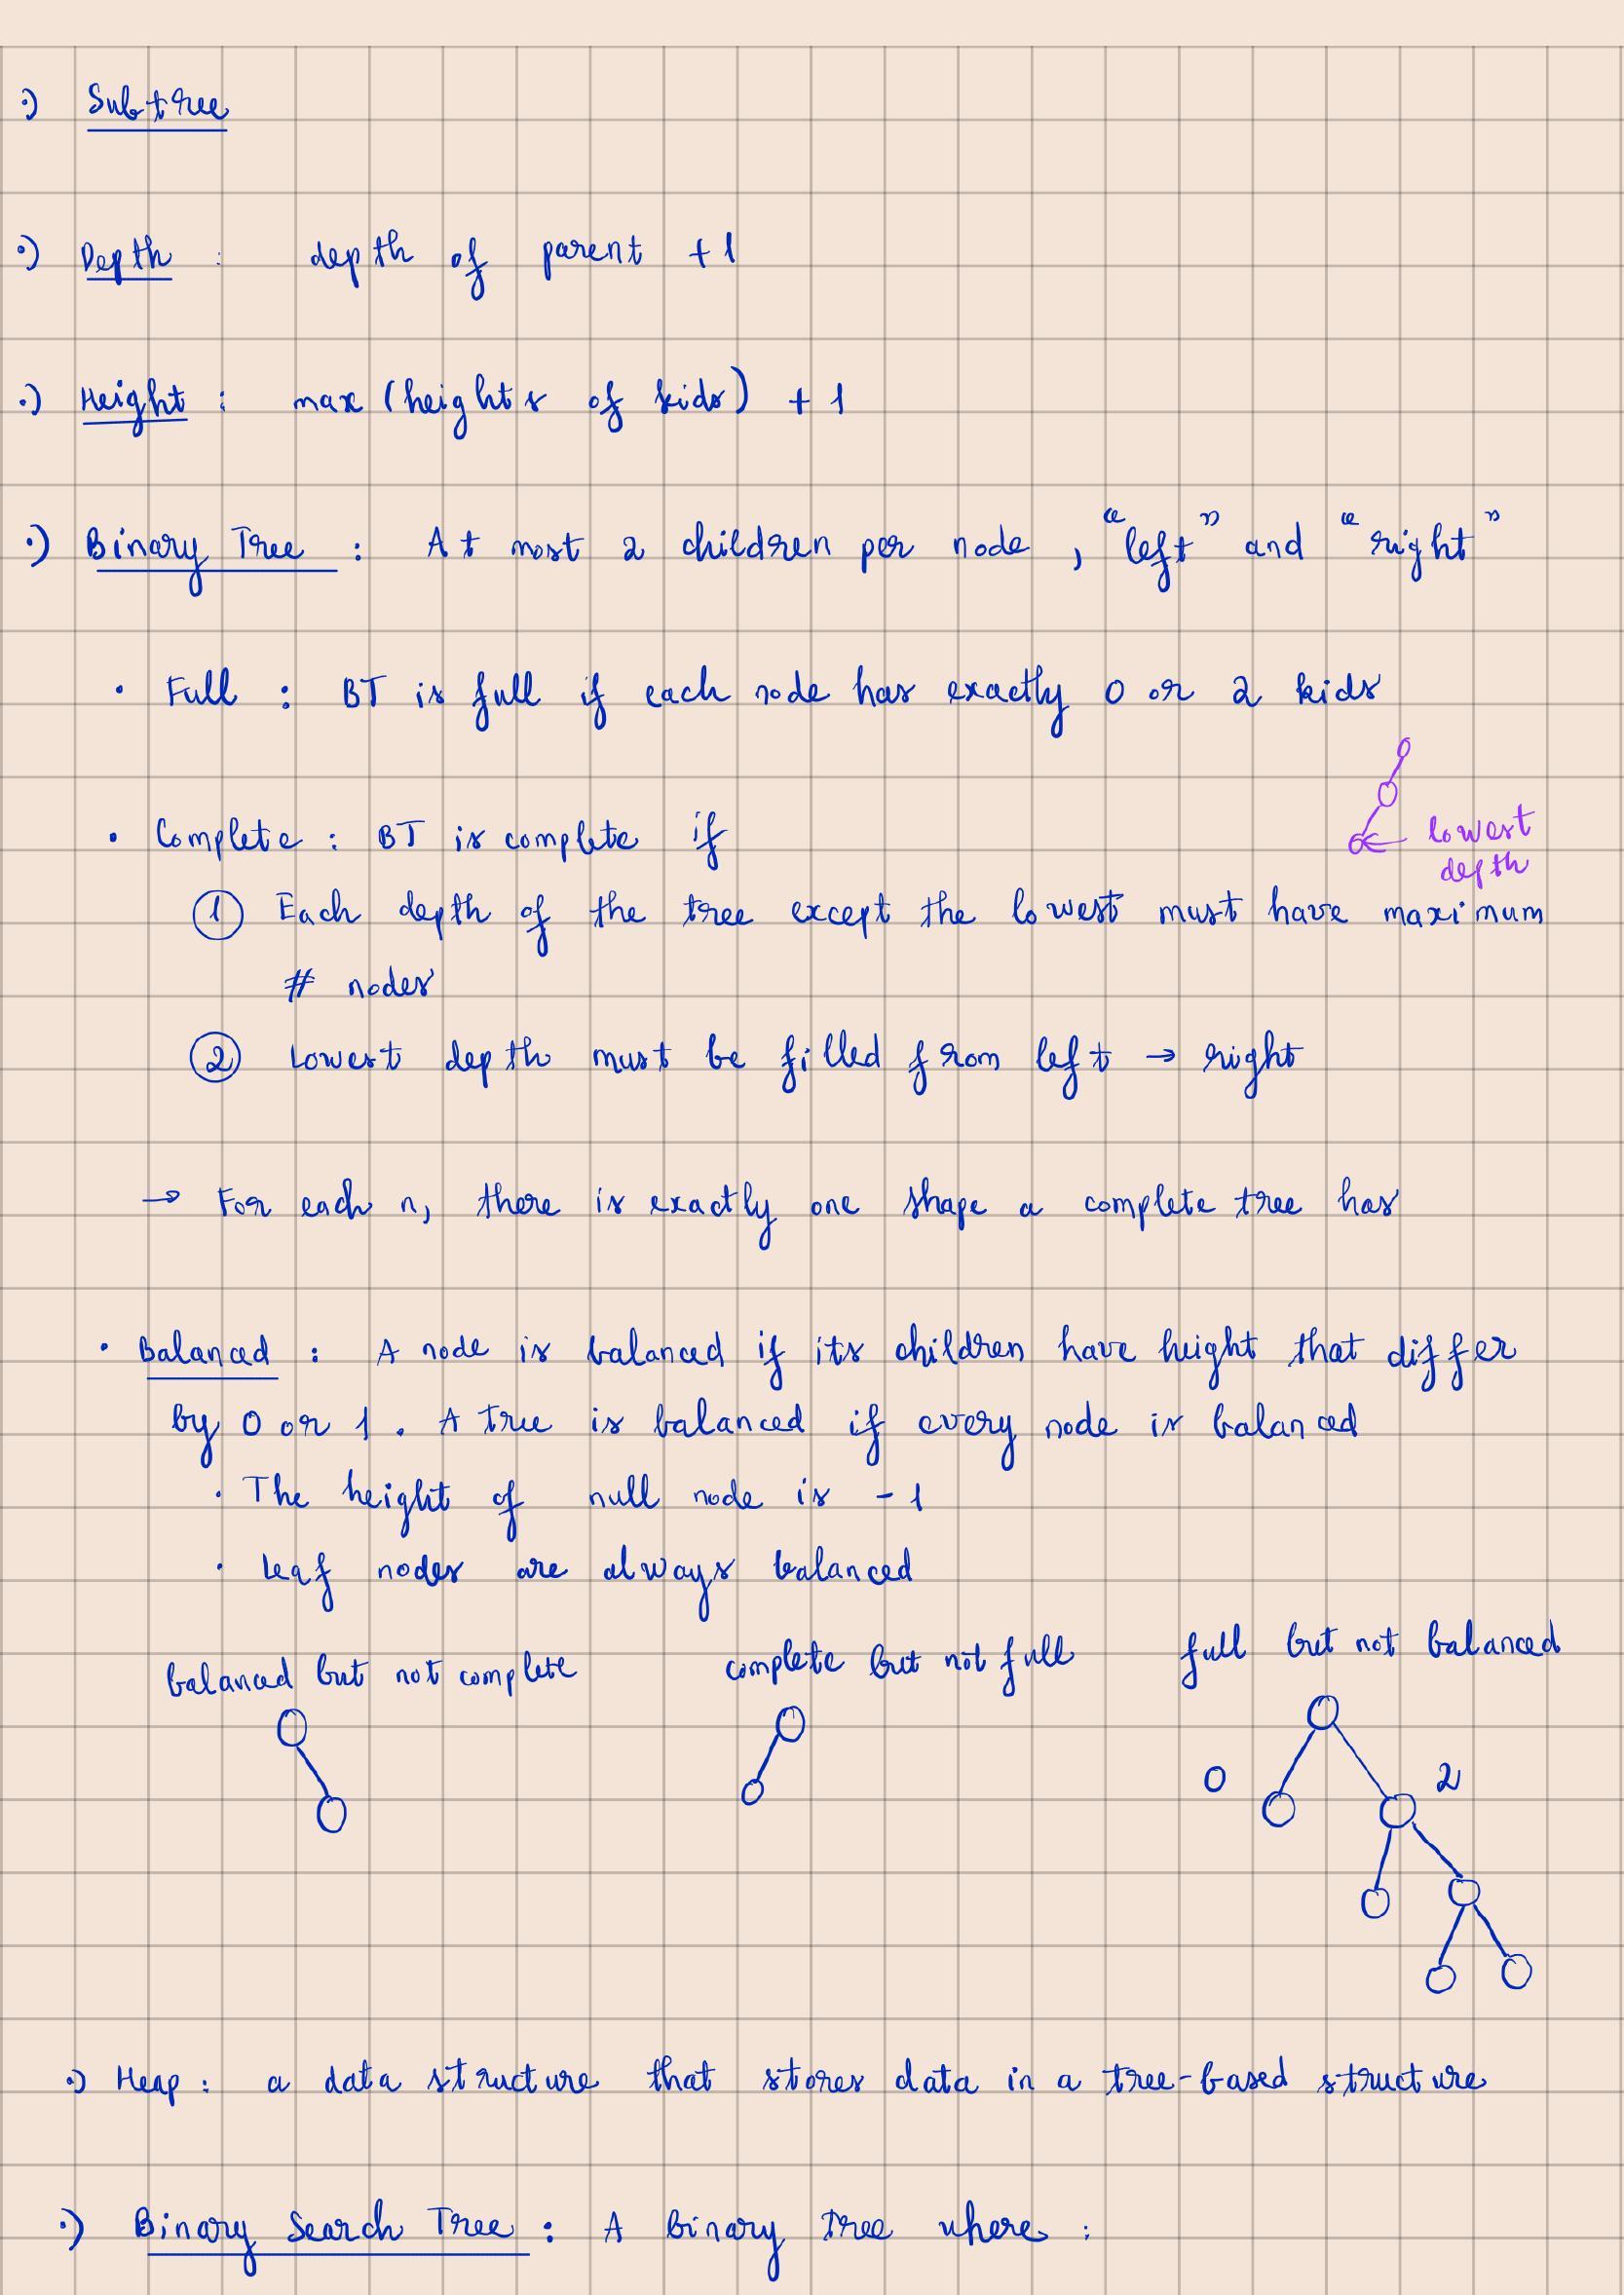 ·) Subtree
·) Depth : depth of parent +1
·) Height : max (heights of kids) + 1
·) Binary Tree : At most 2 children per node , "left" and "right"
· Full : BT is full if each node has exactly 0 or 2 kids
· Complete : BT is complete if
lowest
depth
① Each depth of the tree except the lowest must have maximum
# nodes
② Lowest depth must be filled from left → right
→ For each n, there is exactly one shape a complete tree has
· Balanced : A node is balanced if its children have height that differ
by 0 or 1 . A tree is balanced if every node is balanced
· The height of null node is -1
· Leaf nodes are always balanced
balanced but not complete complete but not full full but not balanced
0 2
·) Heap : a data structure that stores data in a tree-based structure
·) Binary Search Tree : A binary tree where :